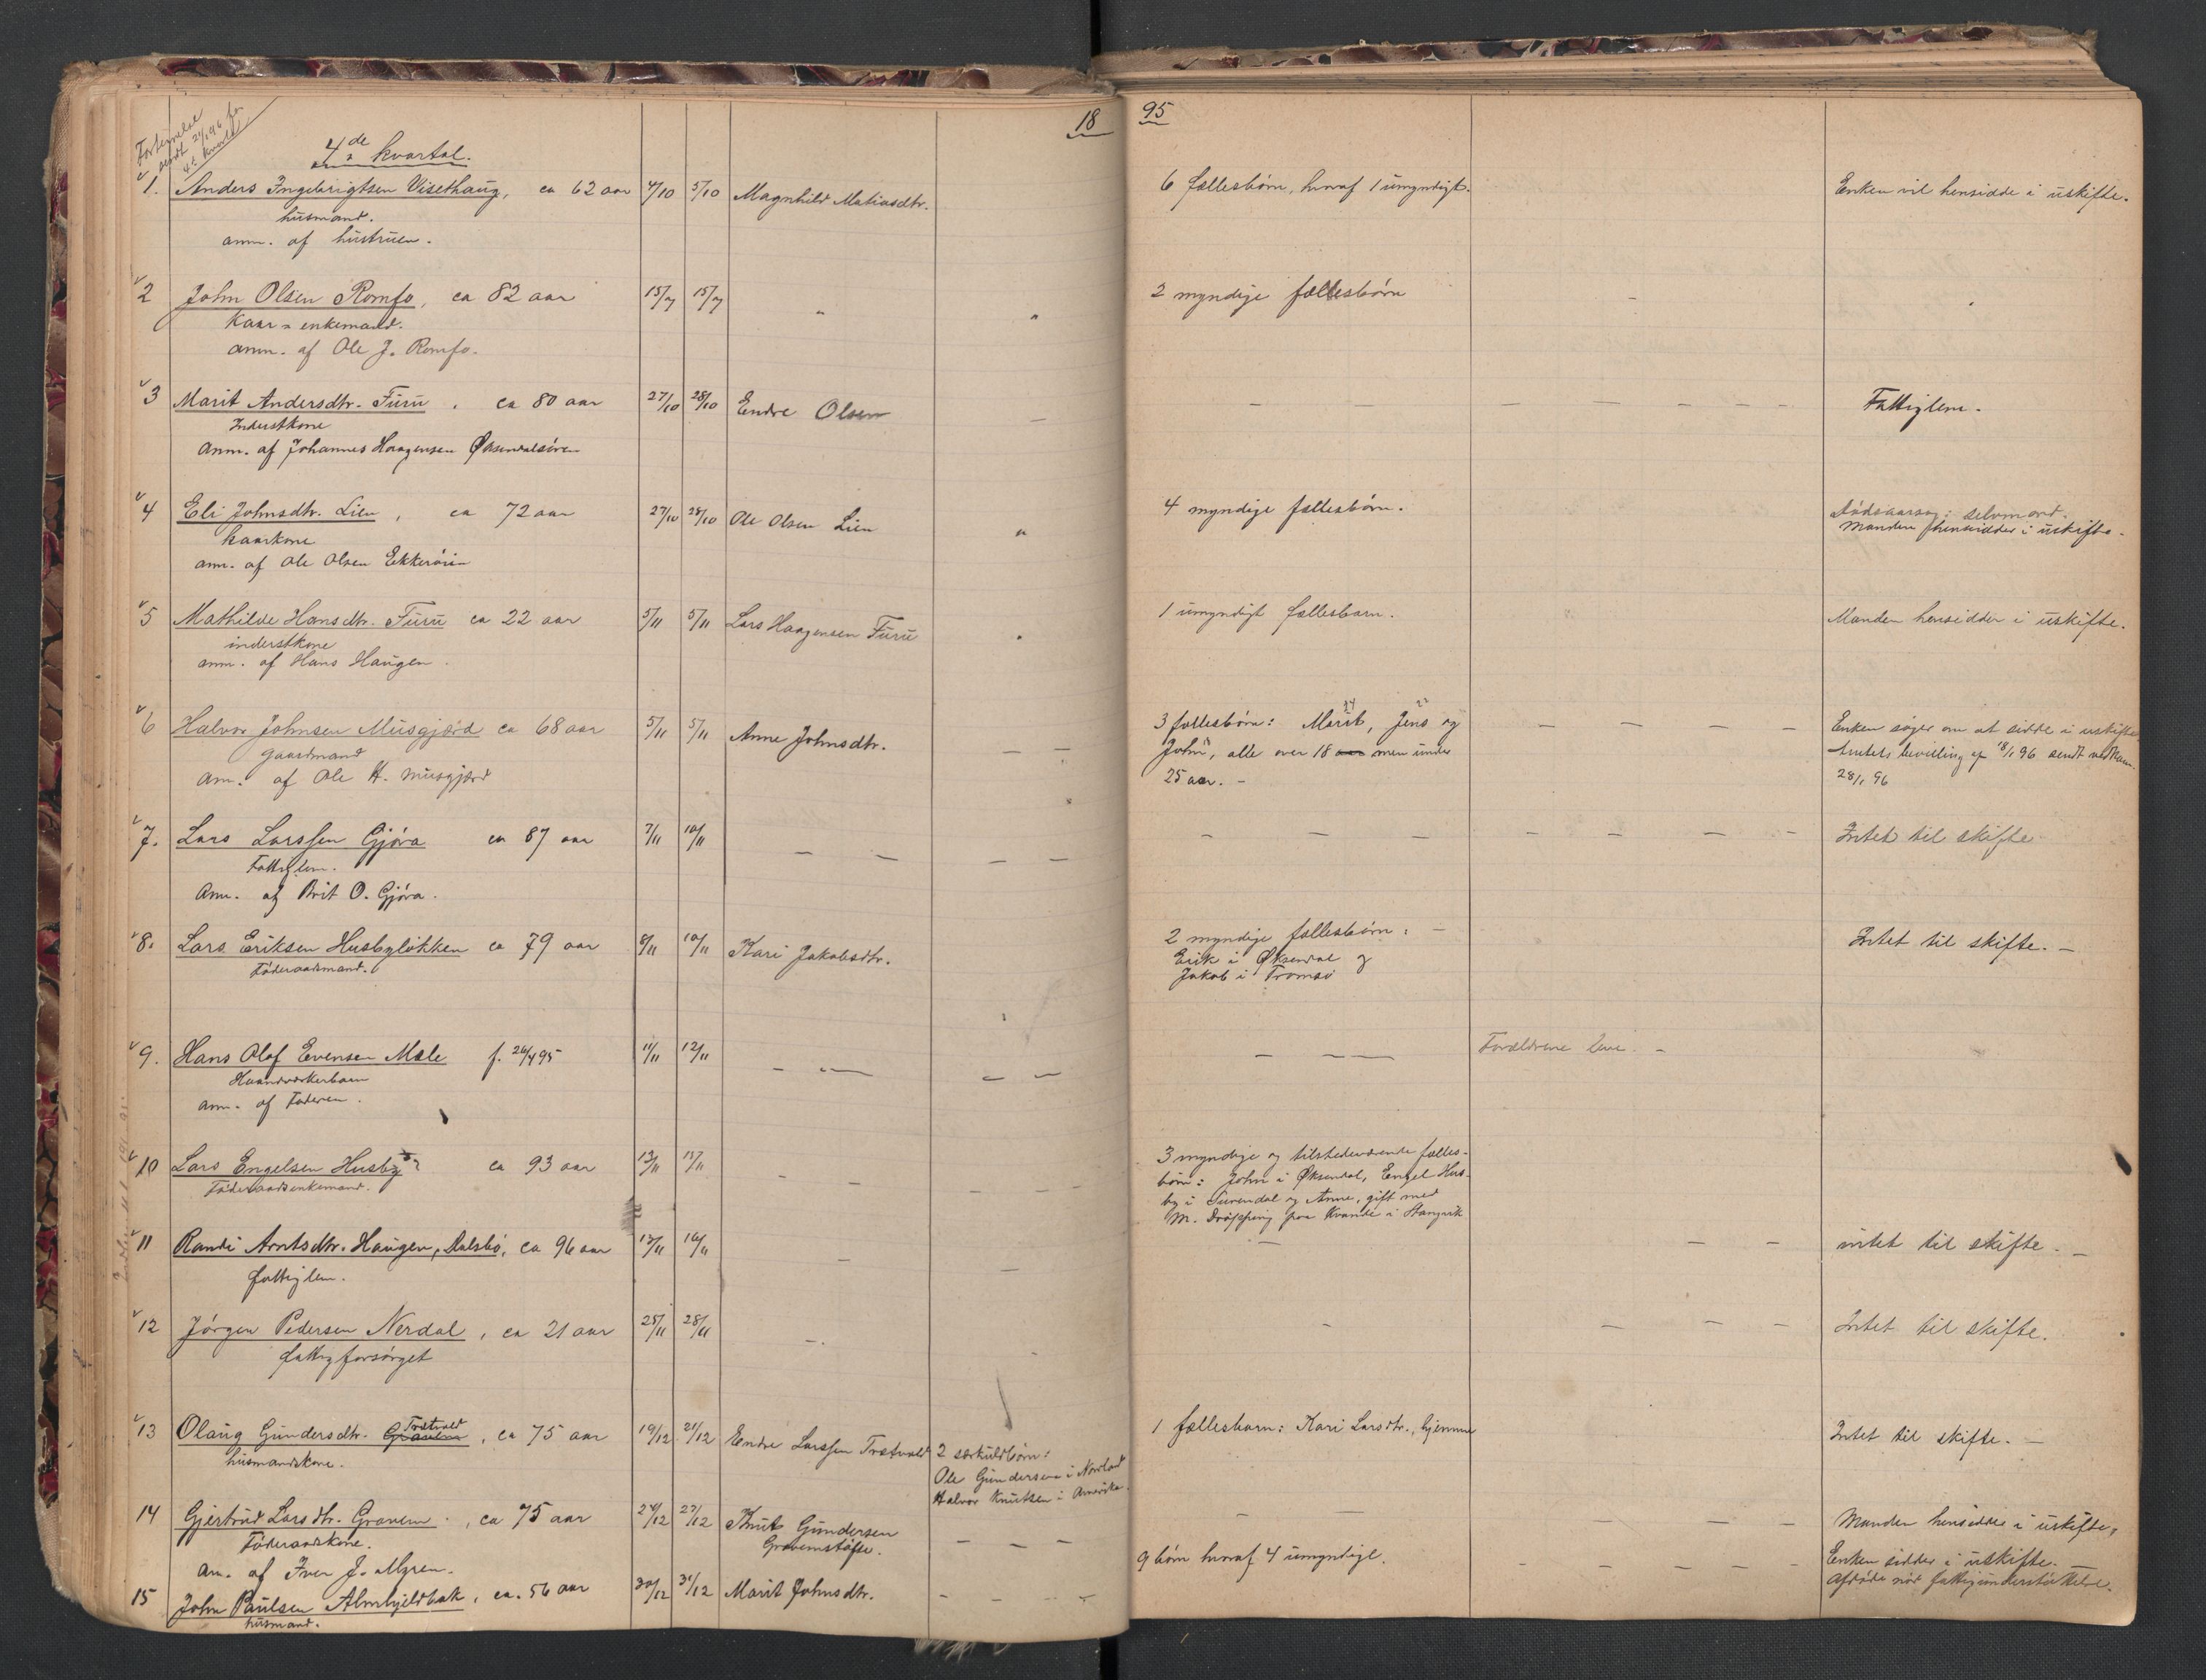 Fortegnelse
sendt 21/1 96 for
4de kvartal
18 95
4de kvartal.
1. Anders Ingebrigtsen Visethaug, ca 62 aar 4/10 5/10 Magnhild Matiasdtr. 6 fællesbörn, hvoraf 1 umyndigt. Enken vil hensidde i uskifte.
husmand.
anm. af hustruen.
2 John Olsen Romfo, ca 82 aar 15/7 15/7 " " 2 myndige fællesbörn
Kaar = enkemand.
anm. af Ole J. Romfo.
3 Marit Andersdtr. Furu, ca 80 aar 27/10 28/10 Endre Olsen — — — — — — — — Fattiglem.
Inderstkone
Anm. af Johannes Haagensen Øksendalsören
4 Eli Johnsdtr. Lien, ca 72 aar 27/10 28/10 Ole Olsen Lien " 4 myndige fællesbörn. Dödsaarsag: selvmord.
Manden hensidder i uskifte.
kaarkone
anm. af Ole Olsen Ekkerören
5 Mathilde Hansdtr. Furu ca 22 aar 5/11 5/11 Lars Haagensen Furu " 1 umyndigt fællesbarn. Manden hensidder i uskifte.
inderstkone
anm. af Hans Haugen.
6 Halvor Johnsen Musgjærd ca 68 aar 5/11 5/11 Anne Johnsdtr. — — 3 fællesbörn: Marit, Jens og — — — — Enken söger om at sidde i uskifte
Gaardmand John, alle over 18 aar men under Amtets bevilling af 8/1 96 sendt
Am. af Ole H. Musgjærd 25 aar. — 28/1 96
7. Lars Larssen Gjöra ca 87 aar 7/11 10/11 — — — — — — — — — — — Intet til skifte
Fattiglem.
Am. af Brit O. Gjöra.
8. Lars Eriksen Husbylökken ca 79 aar 8/11 10/11 Kari Jakobsdtr. 2 myndige fællesbörn: — Intet til skifte. —
Föderaadsmand. Erik i Øksendal og
Jakob i Tromsö
9. Hans Olaf Evensen Mæle f. 26/4 95 11/11 12/11 — — — — — — — Forældrene leve. —
Haandværkerbarn
anm. af Faderen.
10 Lars Engelsen Husby ca 93 aar 13/11 15/11 — — — — — 3 myndige og tilstedeværende fælles-
Föderaadsenkemand. börn: John i Øksendal, Engel Hus-
by i Surendal og Anne, gift med
M. Dröpping paa Kvande i Stangvik
11 Randi Arntsdtr. Haugen, Dalsbö, ca 96 aar 13/11 16/11 — — — — — intet til skifte. —
fattiglem.
12 Jörgen Pedersen Nerdal, ca 21 aar 25/11 28/11 — — — — — Intet til skifte.
fattigforsörget
13 Olaug Gundersdtr. Gravem Trætvold, ca 75 aar 19/12 21/12 Endre Larssen Trætvold 2 særkuldbörn: 1 fællesbarn: Kari Larsdtr., hjemme Intet til skifte. —
husmandskone. Ole Gundersen i Nordland
Halvor Knutsen i Amerika.
14 Gjertrud Larsdtr. Gravem, ca 75 aar 24/12 27/12 Knut Gundersen — — — — — — — — Manden hensidder i uskifte.
Föderaadskone. Gravemstöfte.
Am. af Iver J. Mgren.
15 John Paulsen Almhjeldbak, ca. 56 aar 30/12 31/12 Marit Johnsdtr. — — — — 9 börn hvoraf 4 umyndige. — — — — Enken sidder i uskifte.
Afdöde nöd fattigunderstöttelse.
husmand.